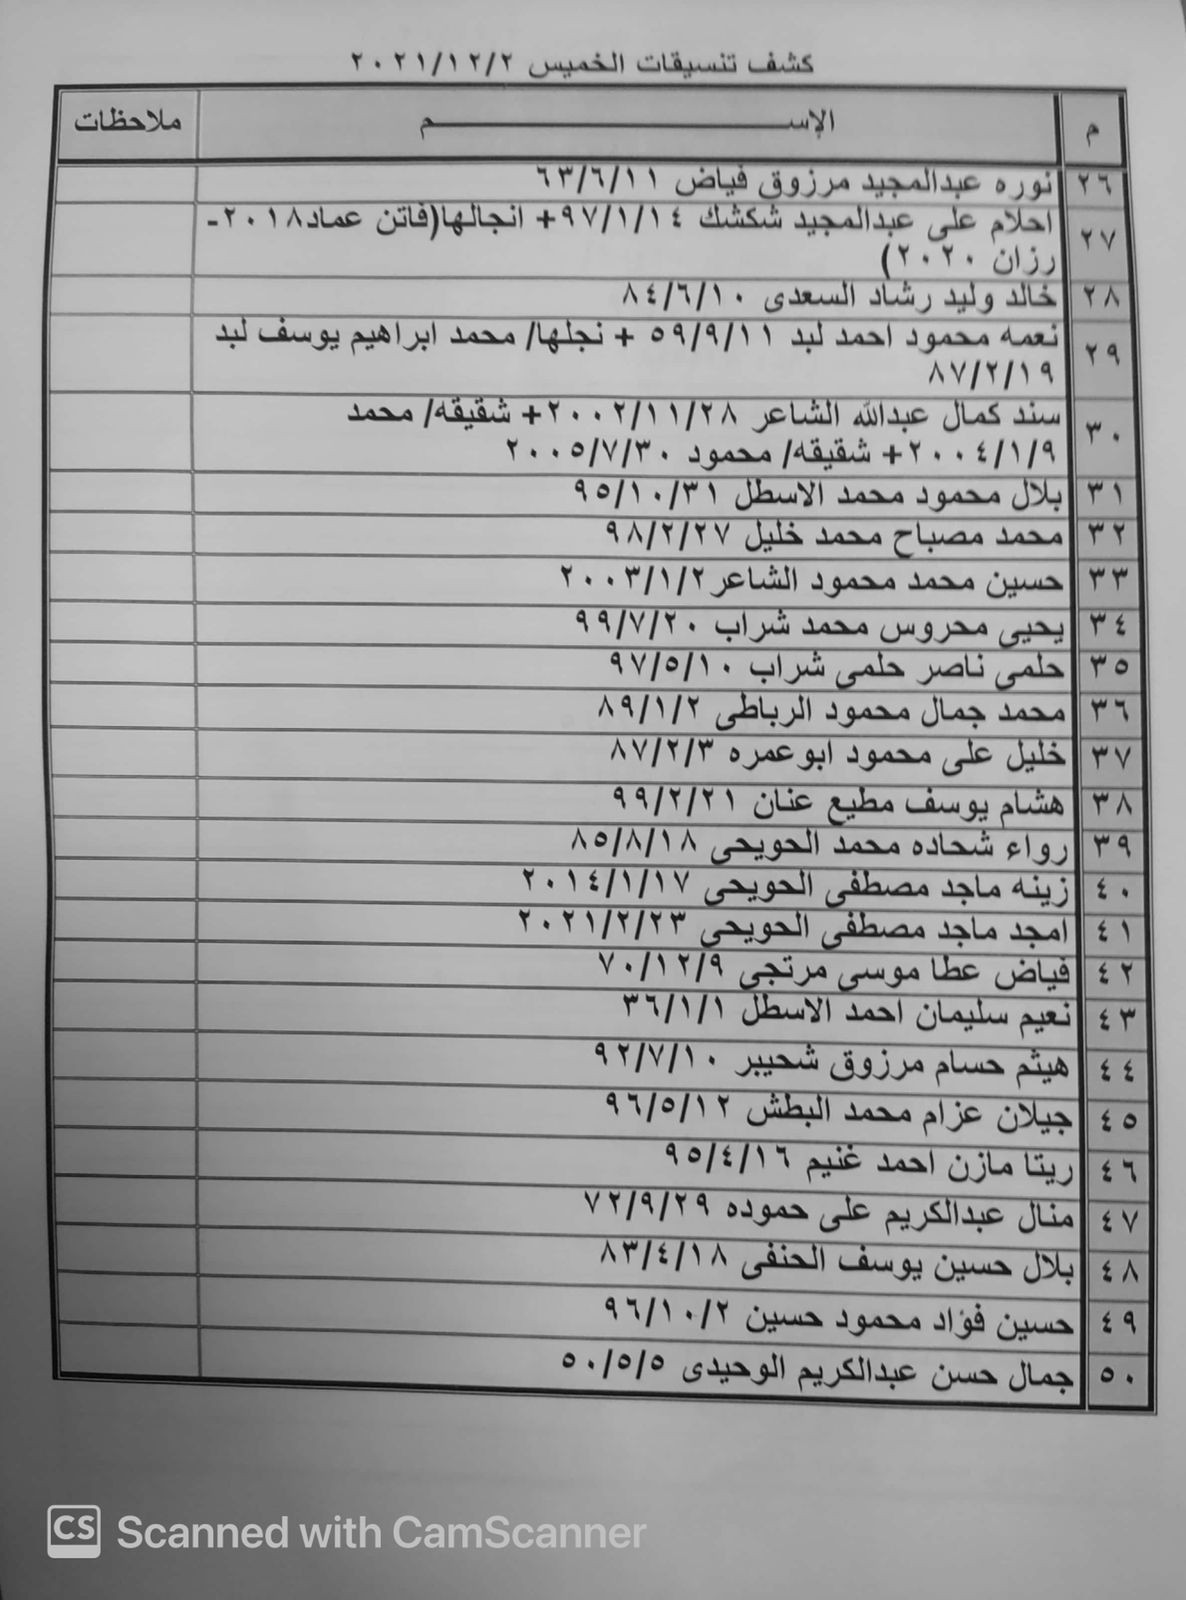 كشف تنسيقات الخميس ٢٠٢١/١٢/٢
م الإســـــــــم ملاحظات
٢٦ نوره عبدالمجيد مرزوق فياض ٦٣/٦/١١
٢٧ احلام على عبدالمجيد شكشك ٩٧/١/١٤+ انجالها(فاتن عماد٢٠١٨-
رزان ٢٠٢٠)
٢٨ خالد وليد رشاد السعدى ٨٤/٦/١٠
٢٩ نعمه محمود احمد لبد ٥٩/٩/١١ + نجلها/ محمد ابراهيم يوسف لبد
٨٧/٢/١٩
٣٠ سند كمال عبدالله الشاعر ٢٠٠٢/١١/٢٨+ شقيقه/ محمد
٢٠٠٤/١/٩+ شقيقه/ محمود ٢٠٠٥/٧/٣٠
٣١ بلال محمود محمد الاسطل ٩٥/١٠/٣١
٣٢ محمد مصباح محمد خليل ٩٨/٢/٢٧
٣٣ حسين محمد محمود الشاعر ٢٠٠٣/١/٢
٣٤ يحيى محروس محمد شراب ٩٩/٧/٢٠
٣٥ حلمى ناصر حلمى شراب ٩٧/٥/١٠
٣٦ محمد جمال محمود الرباطى ٨٩/١/٢
٣٧ خليل على محمود ابوعمره ٨٧/٢/٣
٣٨ هشام يوسف مطيع عنان ٩٩/٢/٢١
٣٩ رواء شحاده محمد الحويحى ٨٥/٨/١٨
٤٠ زينه ماجد مصطفى الحويحى ٢٠١٤/١/١٧
٤١ امجد ماجد مصطفى الحويحى ٢٠٢١/٢/٢٣
٤٢ فياض عطا موسى مرتجى ٧٠/١٢/٩
٤٣ نعيم سليمان احمد الاسطل ٣٦/١/١
٤٤ هيثم حسام مرزوق شحيبر ٩٢/٧/١٠
٤٥ جيلان عزام محمد البطش ٩٦/٥/١٢
٤٦ ريتا مازن احمد غنيم ٩٥/٤/١٦
٤٧ منال عبدالكريم على حموده ٧٢/٩/٢٩
٤٨ بلال حسين يوسف الحنفى ٨٣/٤/١٨
٤٩ حسين فؤاد محمود حسين ٩٦/١٠/٢
٥٠ جمال حسن عبدالكريم الوحيدى ٥٠/٥/٥
CS Scanned with CamScanner